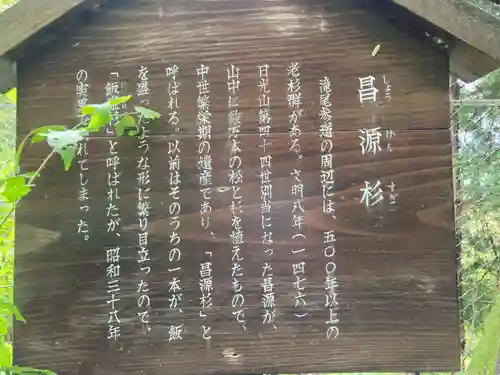 昌源杉
しょう げん すぎ
滝尾参道の周辺には、五〇〇年以上の
老杉群がある。文明八年(一四七六)
日光山第四十四世別当になった昌源が、
山中に数万本の松と杉を植えたもので、
中世繁栄期の遺産であり、「昌源杉」と
呼ばれる。以前はそのうちの一本が、飯
を盛ったような形に繁り目立ったので、
「飯盛杉」と呼ばれたが、昭和三十八年
の
れてしまった。